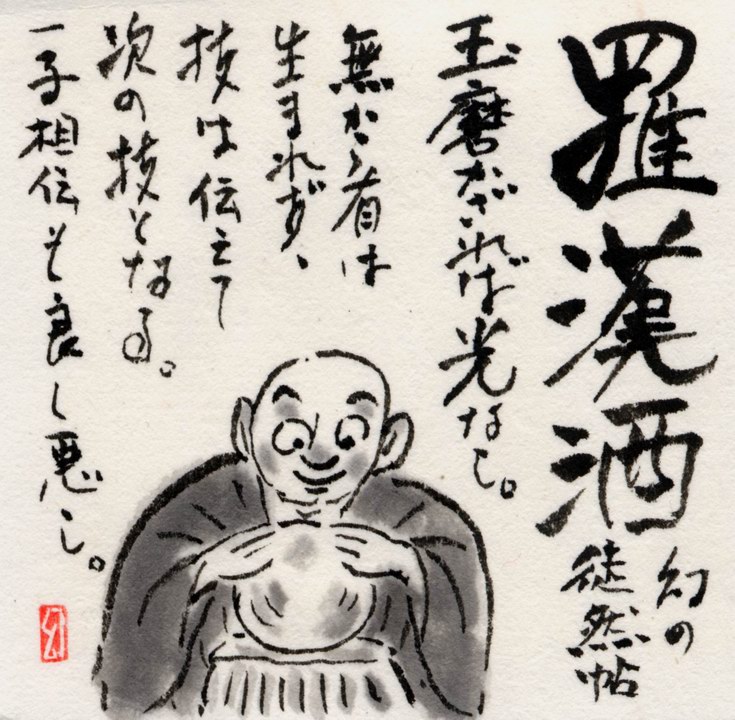 羅漢酒
幻の
徒然帖
玉磨かざれば光なし。
無から有は
生まれず、
技は伝えて
次の技となる。
一子相伝も良し悪し。
幻